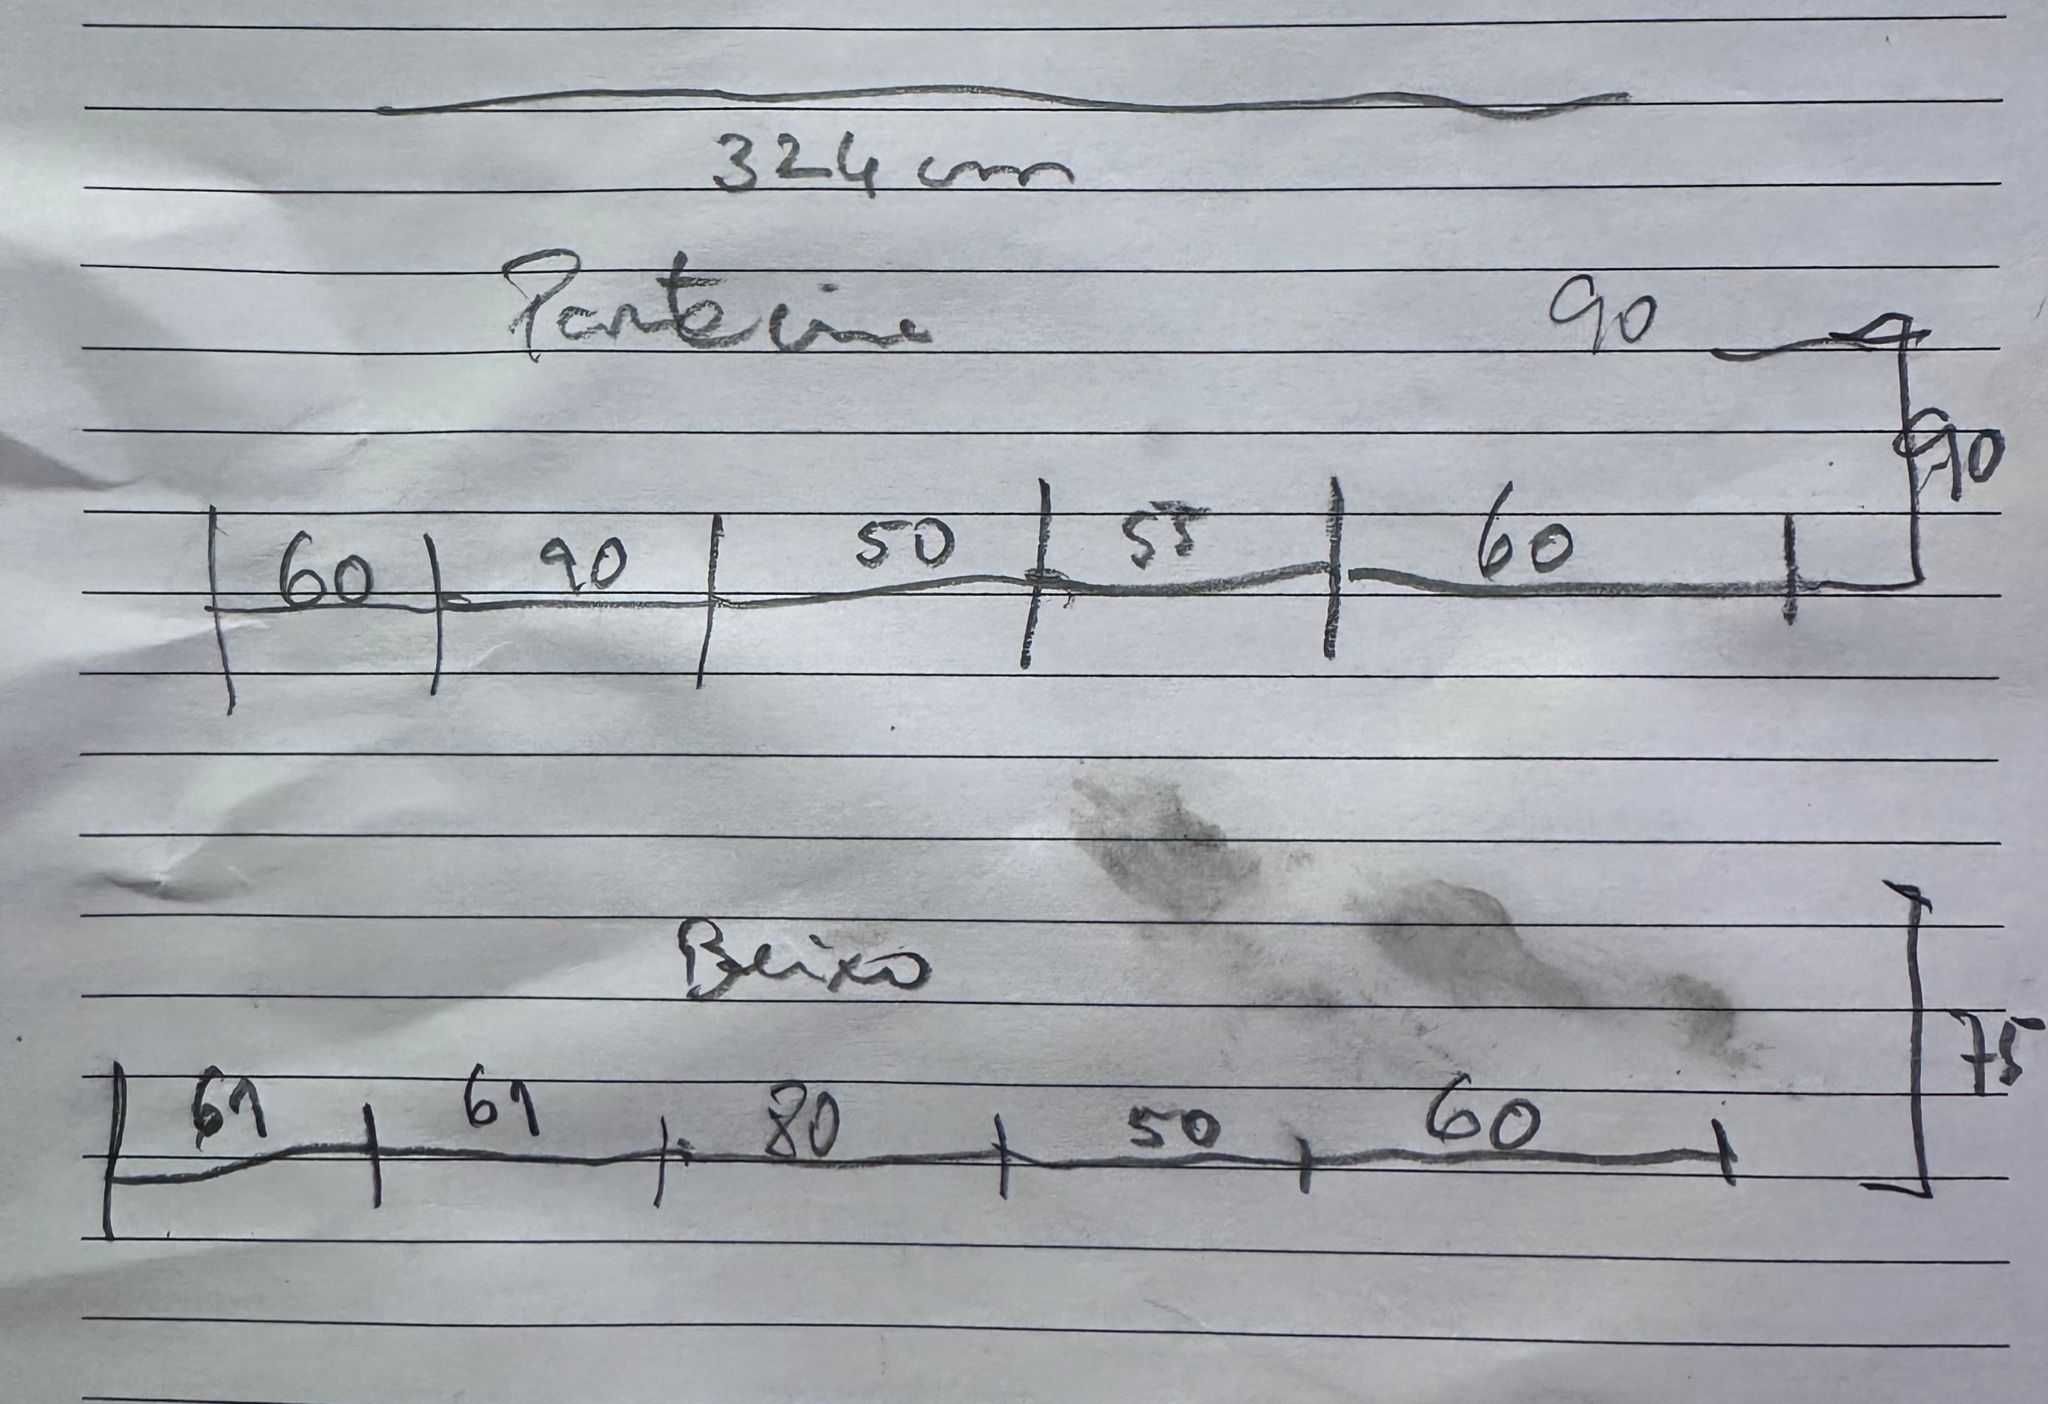 324 cm
Parte cima
90
90
60 90 50 55 60
Beixo
75
61 61 80 50 60